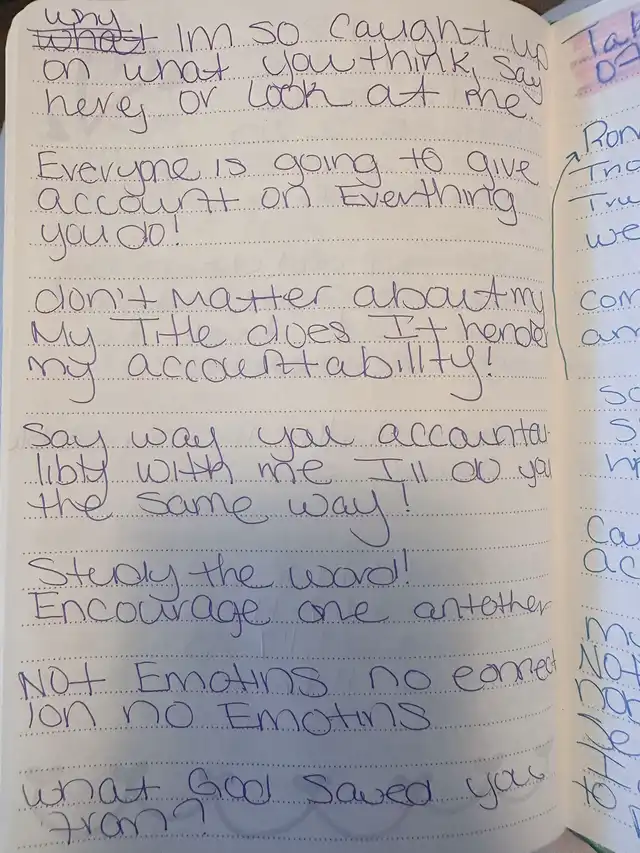 why
what Im so caught up
on what you think, say
here, or look at me.
Everyone is going to give
account on Everthing
you do!
don't matter about my
My Title does It hender
my accountability!
Say way you accounta
libty with me I'll do you
the same way!
Study the word!
Encourage one antother
Not Emotins no correct
ion no Emotins
what God Saved you
from?
Ron
Tru
we
com
an
so
s
hi
Cau
ac
mo
Not
nor
He
to